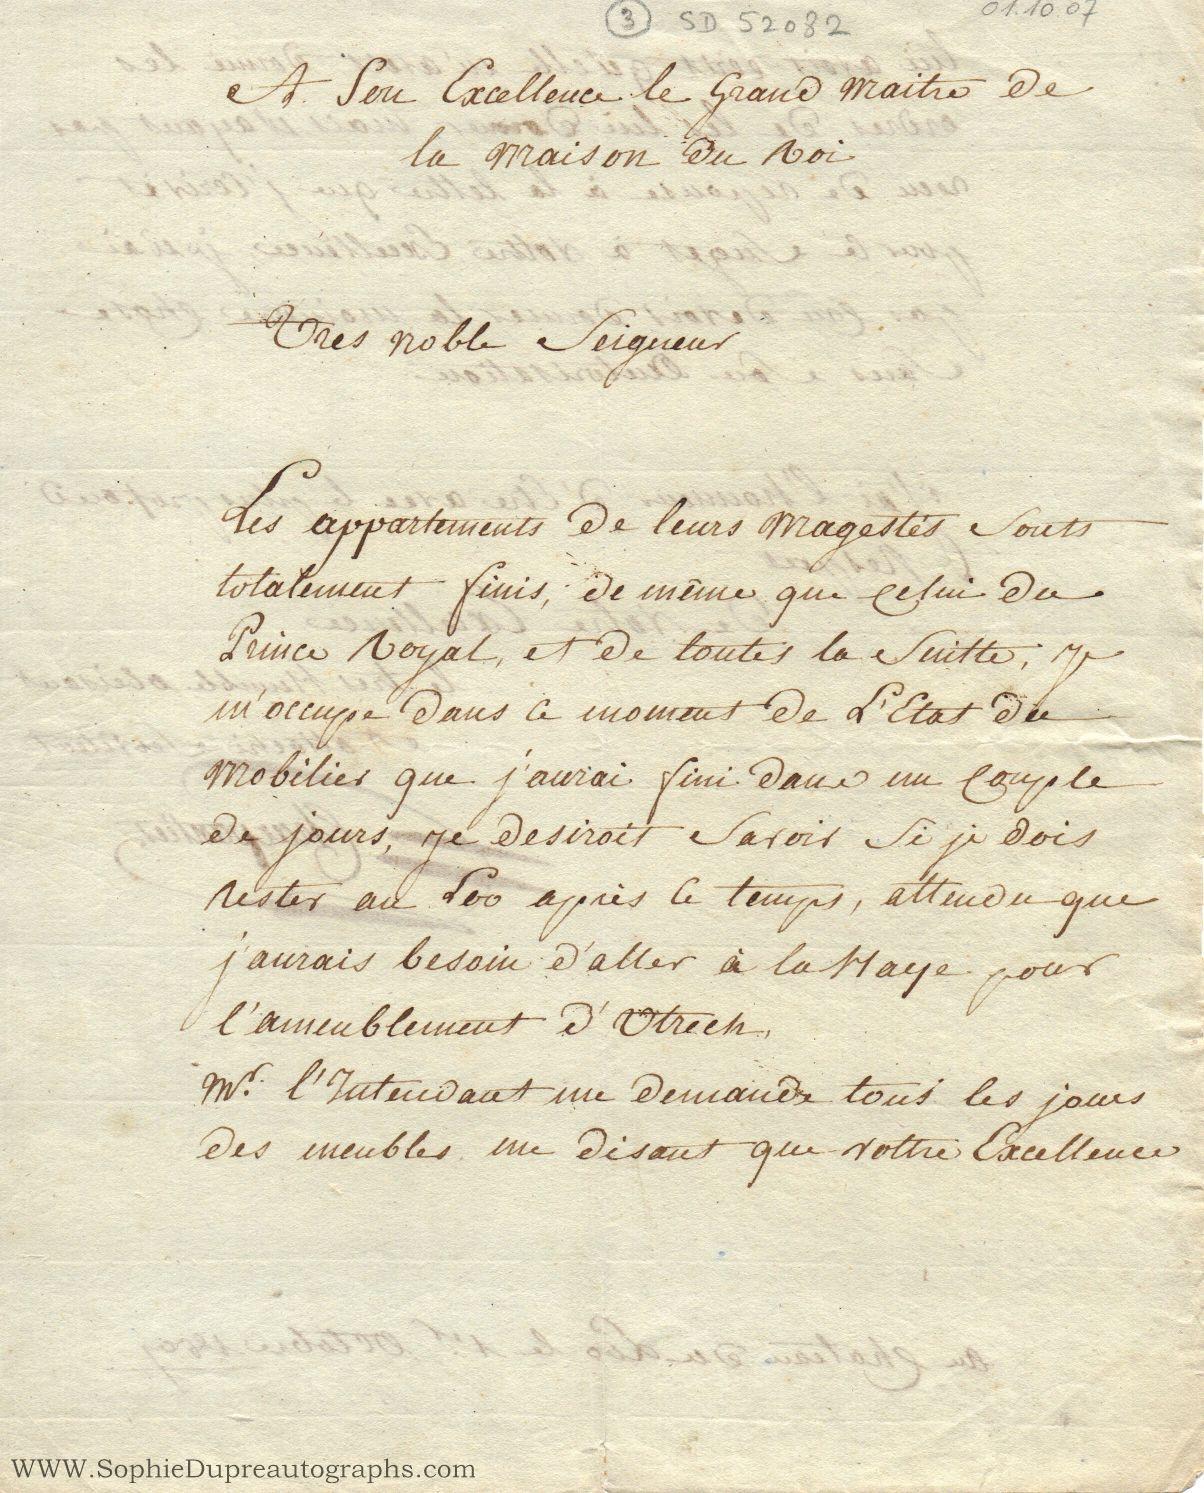 3 SD 52082 01.10.07
A Son Excellence le Grand Maitre de
la Maison du Roi
Tres noble Seigneur
Les appartements de leurs Magestés Sonts
totalement finis, de même que Celui du
Prince Royal, et de toutes la Suitte, Je
m'occupe dans ce moment de L'Etat du
Mobilier que j'aurai fini dans un Couple
de jours, Je desiroit Savoir Si je dois
rester au Loo après ce temps, attendu que
j'aurais besoin d'aller à la Haye pour
l'ameublement d'Utrech,
Mr. l'Intendant me demande tous les jours
des meubles me disant que votre Excellence
au Chateau du Loo le 1er Octobre 1807
WWW.SophieDupreautographs.com